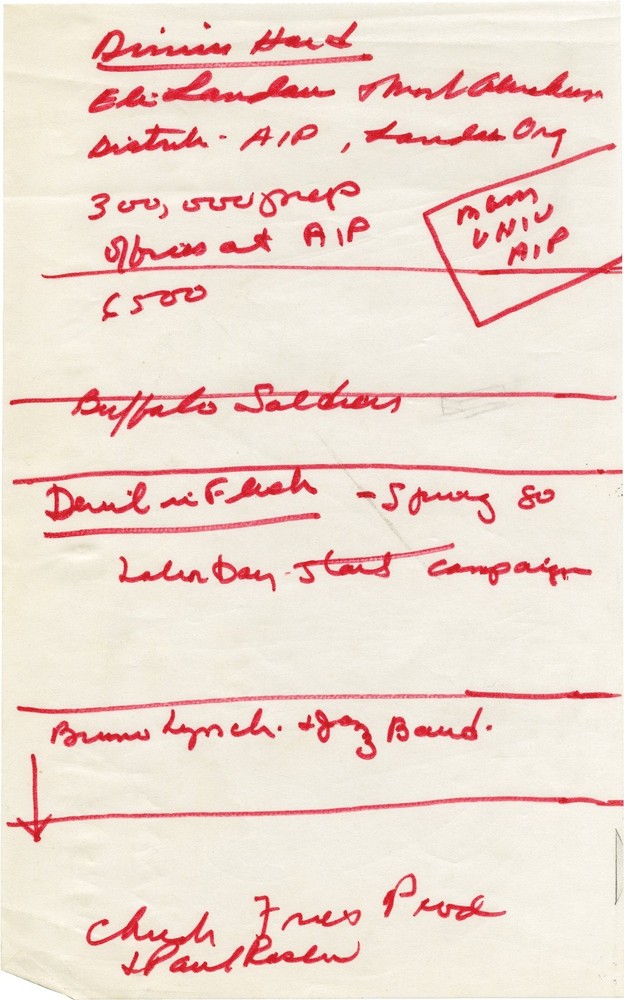 Eli Landau + Mort Abrahams
Distrib - AIP, Landau Org
300,000 prep
offices at AIP
6500
MGM
UNIV
AIP
Buffalo Soldiers
Devil in Flesh - Spring 80
Labor Day - start campaign
Bruno Lynch. + Jazz Band.
Chuck Fries Prod
+ Paul